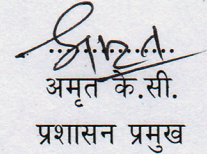 अमृत के.सी.
प्रशासन प्रमुख